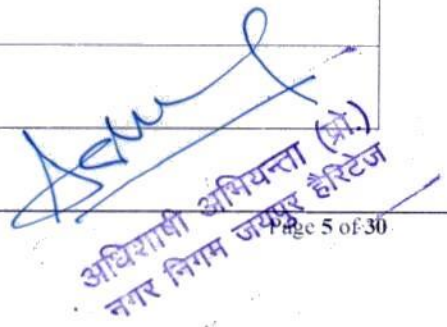 अधिशाषी अभियन्ता (प्रो.)
नगर निगम जयपुर हैरिटेज
Page 5 of 30